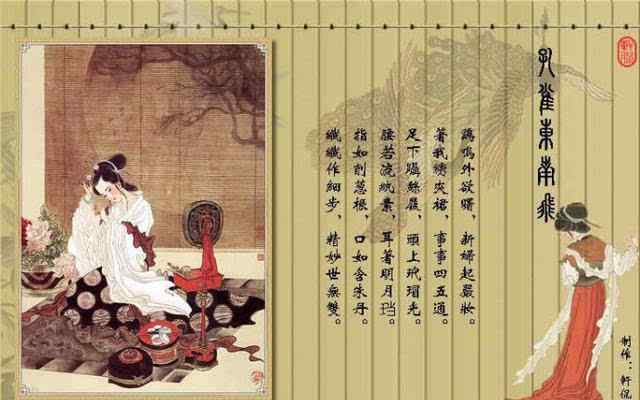 孔雀東南飛
鷄鳴外欲曙，新婦起嚴妝。
著我繡夾裙，事事四五通。
足下躡絲履，頭上玳瑁光。
腰若流紈素，耳著明月珰。
指如削葱根，口如含朱丹。
纖纖作細步，精妙世無雙。
制作：軒侃